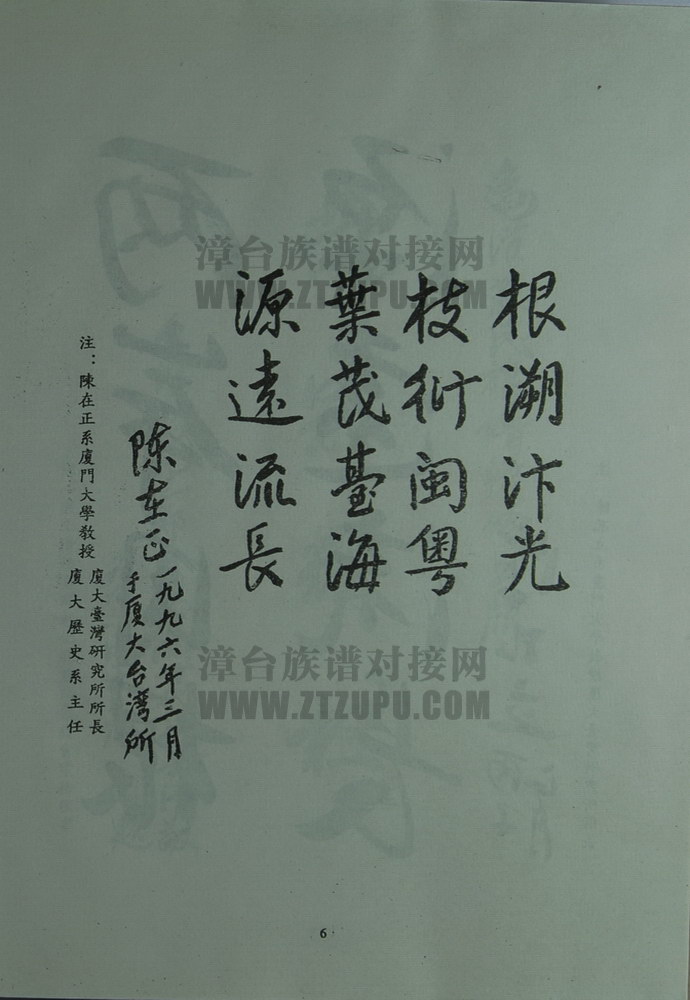 根溯汴光
枝衍闽粤
葉茂臺海
源遠流長
陈在正一九九六年三月
于厦大台湾所
注：陳在正系廈門大學教授
廈大臺灣研究所所長
廈大歷史系主任
漳台族谱对接网
WWW.ZTZUPU.COM
漳台族谱对接网
WWW.ZTZUPU.COM
6